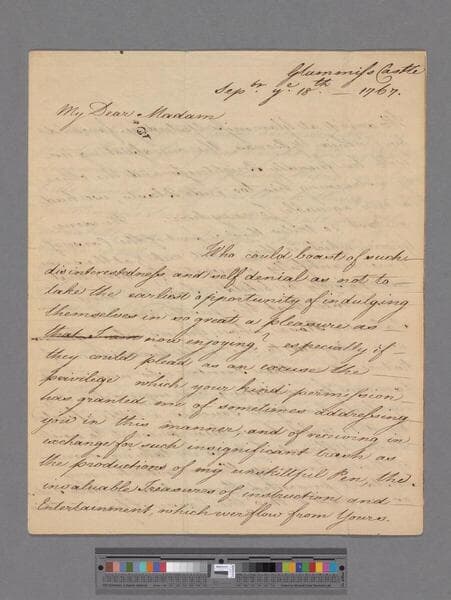 Glammiss Castle
Sepbr ye 18th — 1767.
My Dear Madam
Who could boast of such
disinterestedness and self denial as not to
take the earliest opportunity of indulging
themselves in so great a pleasure as
that I am now enjoying? — especially if
they could plead as an excuse the
privilege which your kind permission
has granted me of sometimes addressing
you in this manner, and of receiving in
exchange for such insignificant trash as
the productions of my unskillful Pen, the
invaluable Treasures of instruction and
Entertainment, which ever flow from Yours.